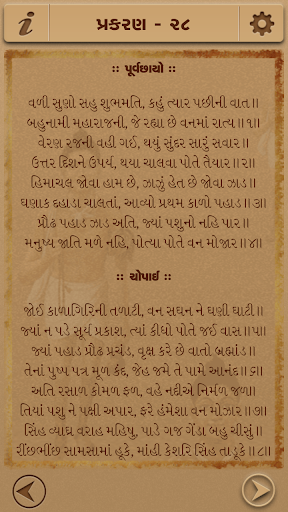 પ્રકરણ - ૨૮
:: પૂર્વછાયો ::
વળી સુણો સહુ શુભમતિ, કહું ત્યાર પછીની વાત॥
બહુનામી મહારાજની, જે રહ્યા છે વનમાં રાત્ય॥૧॥
વેરણ રજની વહી ગઈ, થયું સુંદર સારું સવાર॥
ઉત્તર દિશને ઉપર્ય, થયા ચાલવા પોતે તૈયાર॥૨॥
હિમાચલ જોવા હામ છે, ઝાઝું હેત છે જોવા ઝાડ॥
ઘણાક દહાડા ચાલતાં, આવ્યો પ્રથમ કાળો પહાડ॥૩॥
પ્રૌઢ પહાડ ઝાડ અતિ, જ્યાં પશુનો નહિ પાર॥
મનુષ્ય જાતિ મળે નહિ, પોત્યા પોતે વન મોજાર॥૪॥
:: ચોપાઈ ::
જોઈ કાળાગિરિની તળાટી, વન સઘન ને ઘણી ઘાટી॥
જ્યાં ન પડે સૂર્ય પ્રકાશ, ત્યાં કીધો પોતે જઈ વાસ॥૫॥
જ્યાં પહાડ પ્રૌઢ પ્રચંડ, વૃક્ષ કરે છે વાતો બ્રહ્માંડ॥
તેનાં પુષ્પ પત્ર મૂળ કંદ, જેહ જમે તે પામે આનંદ॥૬॥
અતિ રસાળ કોમળ ફળ, વહે નદીએ નિર્મળ જળ॥
તિયાં પશુ ને પક્ષી અપાર, ફરે હંમેશા વન મોઝાર॥૭॥
સિંહ વ્યાઘ્ર વરાહ મહિષુ, પાડે ગજ ગેંડા બહુ ચીસું॥
રીંછભીંછ સામસામાં હૂકે, માંહી કેશરિ સિંહ તાડૂકે॥૮॥